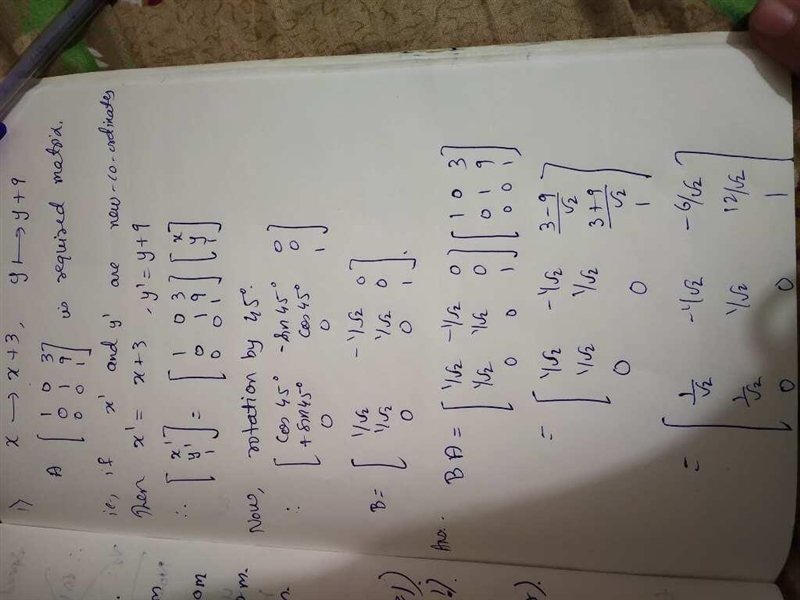 i) x → x+3, y ↦ y+9
A [ 1 0 3
0 1 9
0 0 1 ] is required matrix.
ie, if x' and y' are new-co-ordinates
Then x' = x+3, y' = y+9
∴ [ x'
y'
1 ] = [ 1 0 3
0 1 9
0 0 1 ] [ x
y
1 ]
Now, rotation by 45°.
∴ [ cos 45° -sin 45° 0
+sin 45° cos 45° 0
0 0 1 ]
B = [ 1/√2 -1/√2 0
1/√2 1/√2 0
0 0 1 ].
Ans.. BA = [ 1/√2 -1/√2 0
1/√2 1/√2 0
0 0 1 ] [ 1 0 3
0 1 9
0 0 1 ]
= [ 1/√2 -1/√2 3-9/√2
1/√2 1/√2 3+9/√2
0 0 1 ]
= [ 1/√2 -1/√2 -6/√2
1/√2 1/√2 12/√2
0 0 1 ]